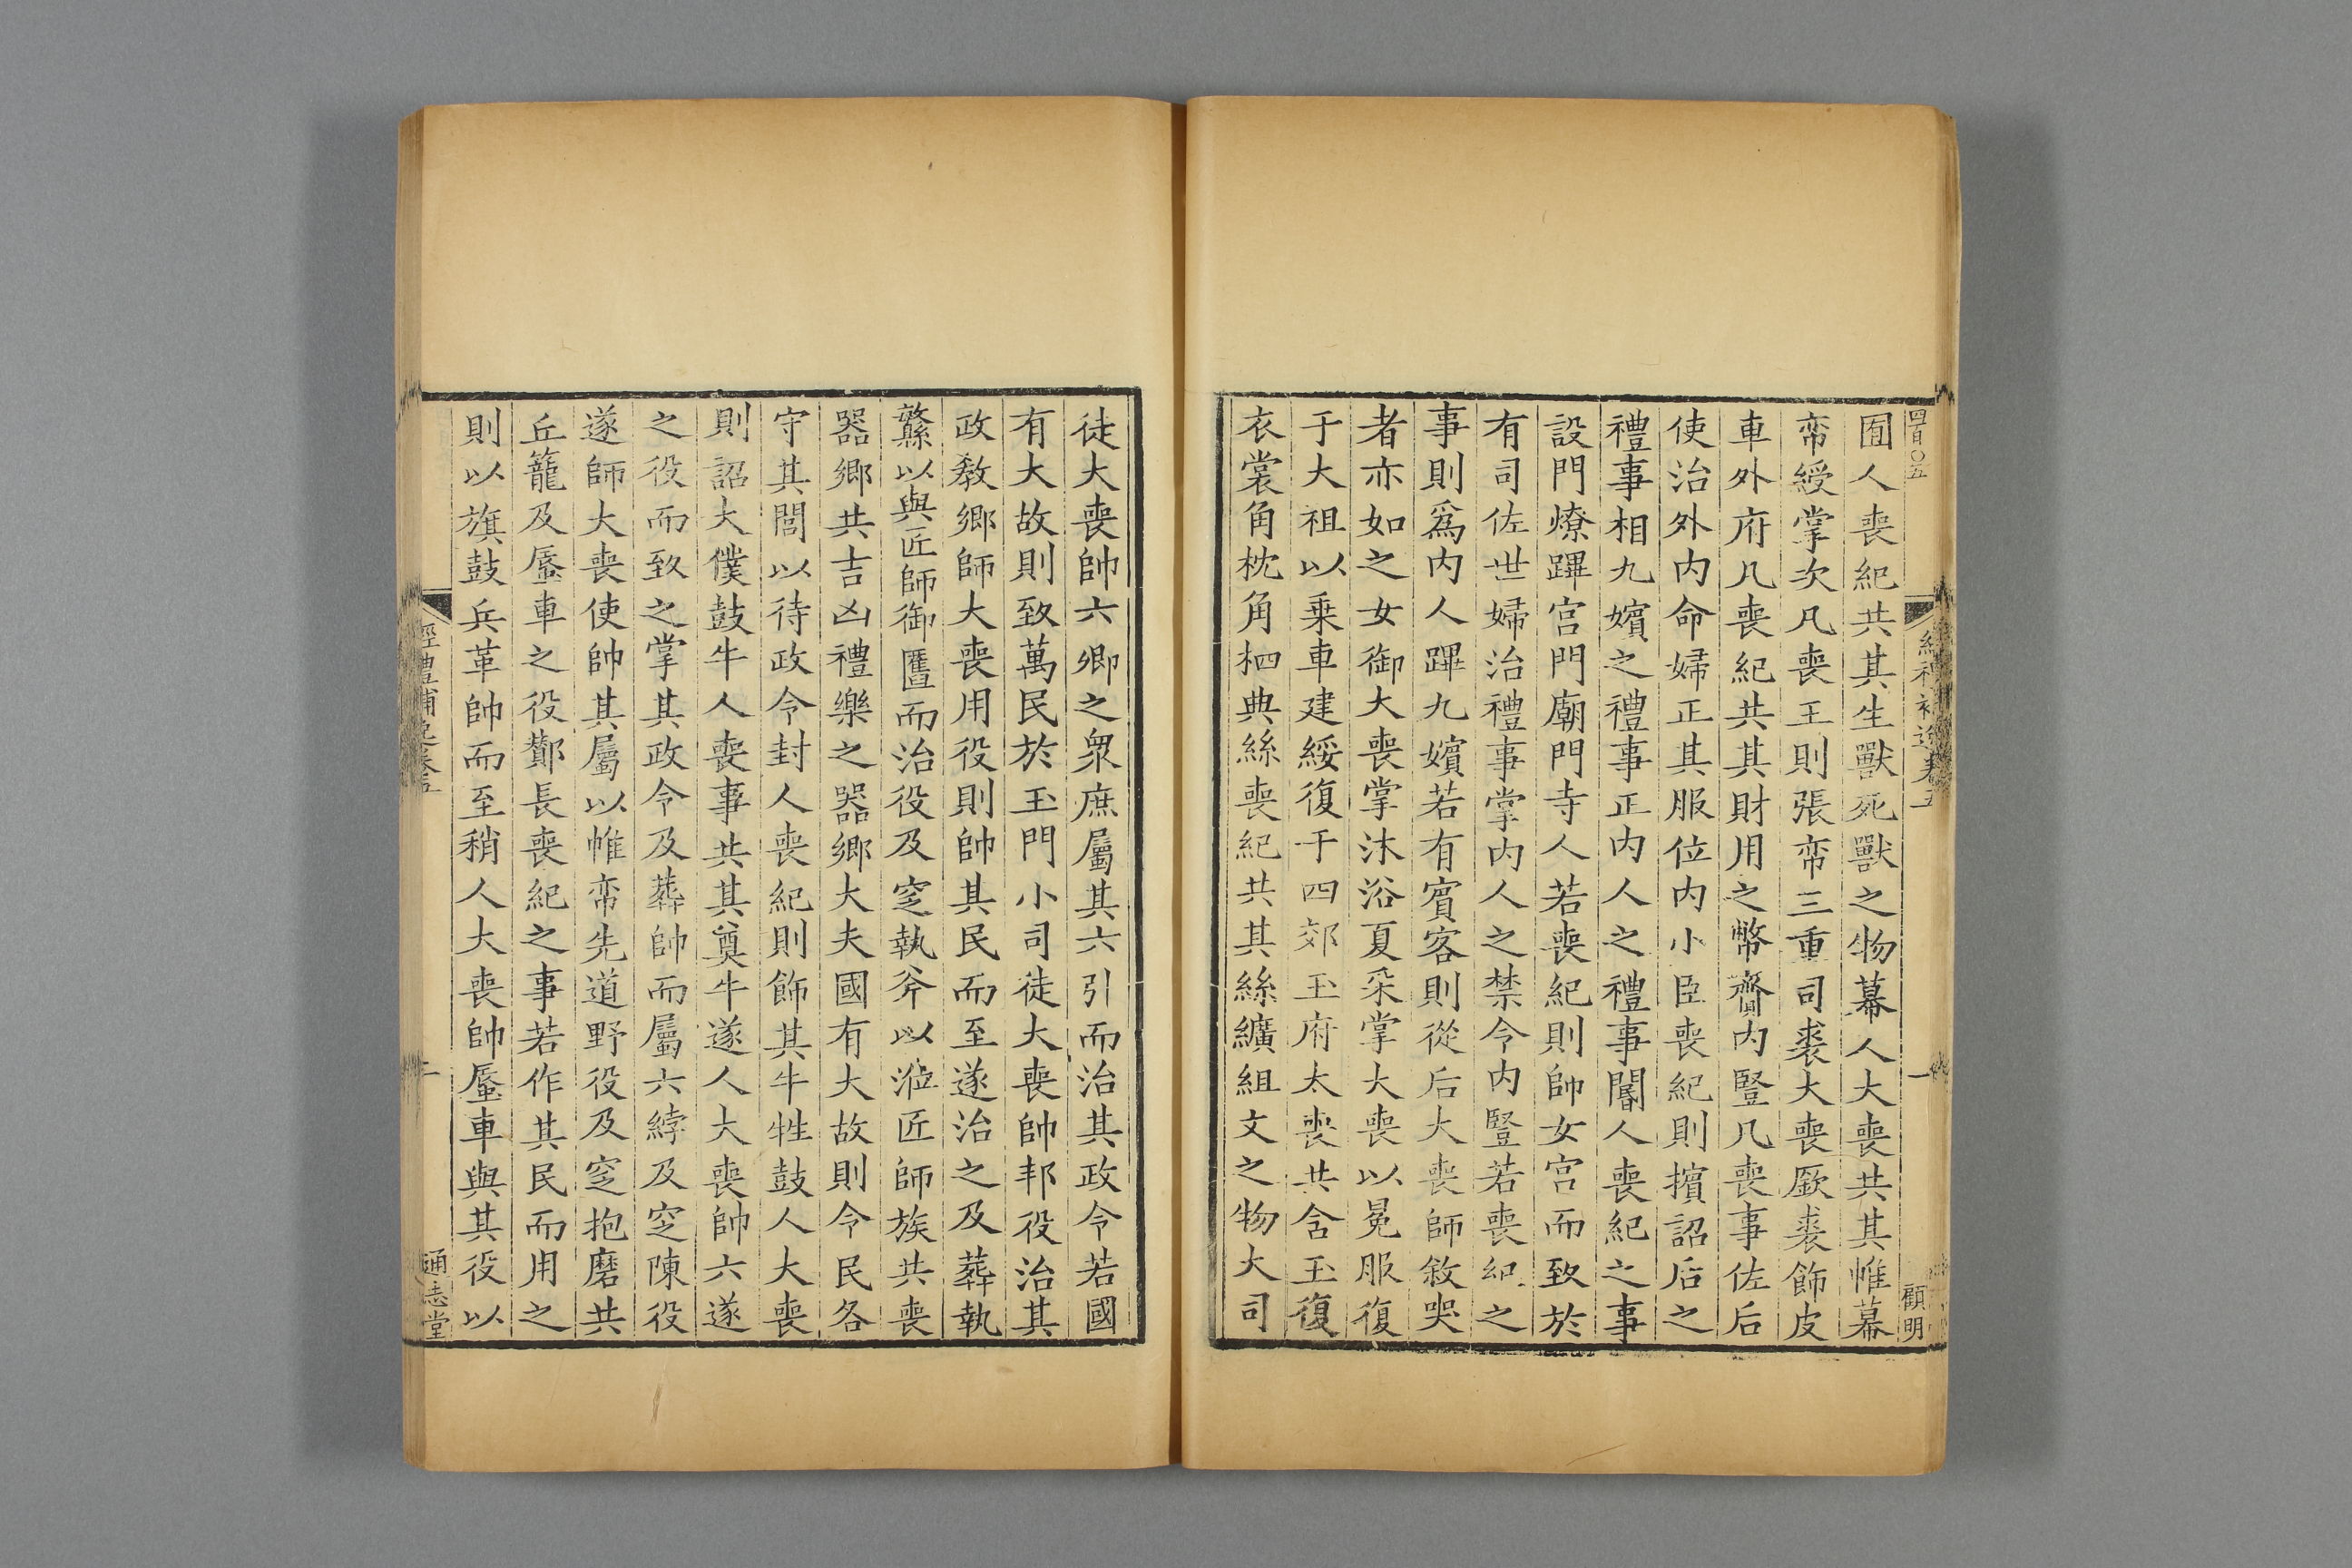 四百〇五
經禮補逸卷五
一
顧明
囿人喪紀共其生獸死獸之物幕人大喪共其帷幕
帟綬掌次凡喪王則張帟三重司裘大喪廞裘飾皮
車外府凡喪紀共其財用之幣齎内豎凡喪事佐后
使治外内命婦正其服位内小臣喪紀則擯詔后之
禮事相九嬪之禮事正内人之禮事閽人喪紀之事
設門燎蹕宫門廟門寺人若喪紀則帥女宫而致於
有司佐世婦治禮事掌内人之禁令内豎若喪紀之
事則爲内人蹕九嬪若有賓客則從后大喪師敘哭
者亦如之女御大喪掌沐浴夏采掌大喪以冕服復
于大祖以乗車建綏復于四郊玉府太喪共含玉復
衣裳角枕角柶典絲喪紀共其絲纊組文之物大司
徒大喪帥六卿之衆庶屬其六引而治其政令若國
有大故則致萬民於王門小司徒大喪帥邦役治其
政敎鄉師大喪用役則帥其民而至遂治之及葬執
纛以與匠師御匶而治役及窆執斧以涖匠師族共喪
器鄉共吉凶禮樂之器鄉大夫國有大故則令民各
守其閭以待政令封人喪紀則飾其牛牲鼓人大喪
則詔大僕鼓牛人喪事共其奠牛遂人大喪帥六遂
之役而致之掌其政令及葬帥而屬六綍及窆陳役
遂師大喪使帥其屬以帷帟先道野役及窆抱磨共
丘籠及蜃車之役酇長喪紀之事若作其民而用之
則以旗鼓兵革帥而至稍人大喪帥蜃車與其役以
經禮補逸卷五
通志堂